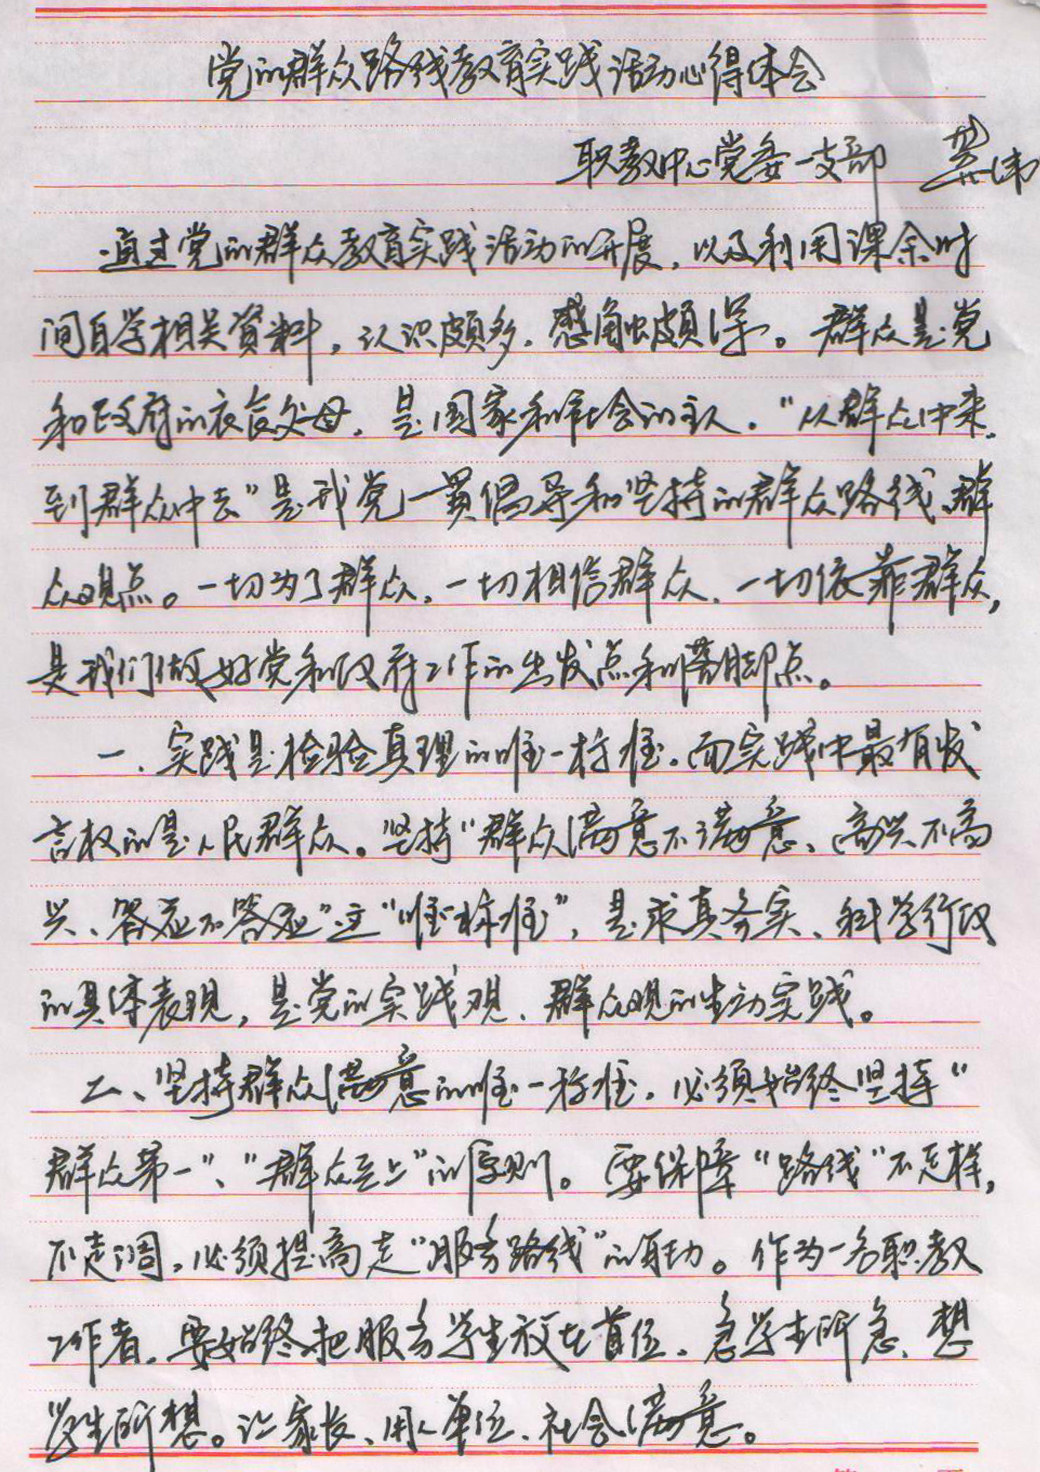 党的群众路线教育实践活动心得体会
职教中心党委一支部 龚伟
通过党的群众教育实践活动的开展，以及利用课余时
间自学相关资料，认识颇多，感触颇深。群众是党
和政府的衣食父母，是国家和社会的主人。“从群众中来，
到群众中去”是我党一贯倡导和坚持的群众路线、群
众观点。一切为了群众，一切相信群众，一切依靠群众，
是我们做好党和政府工作的出发点和落脚点。
一、实践是检验真理的唯一标准。而实践中最有发
言权的是人民群众。坚持“群众满意不满意、高兴不高
兴、答应不答应”这“唯一标准”，是求真务实、科学行政
的具体表现，是党的实践观、群众观的生动实践。
二、坚持群众满意的唯一标准，必须始终坚持“
群众第一”、“群众至上”的原则。要保障“路线”不走样，
不走调，必须提高走“服务路线”的自动。作为一名职教
工作者，要始终把服务学生放在首位，急学生所急、想
学生所想。让家长、用人单位、社会满意。